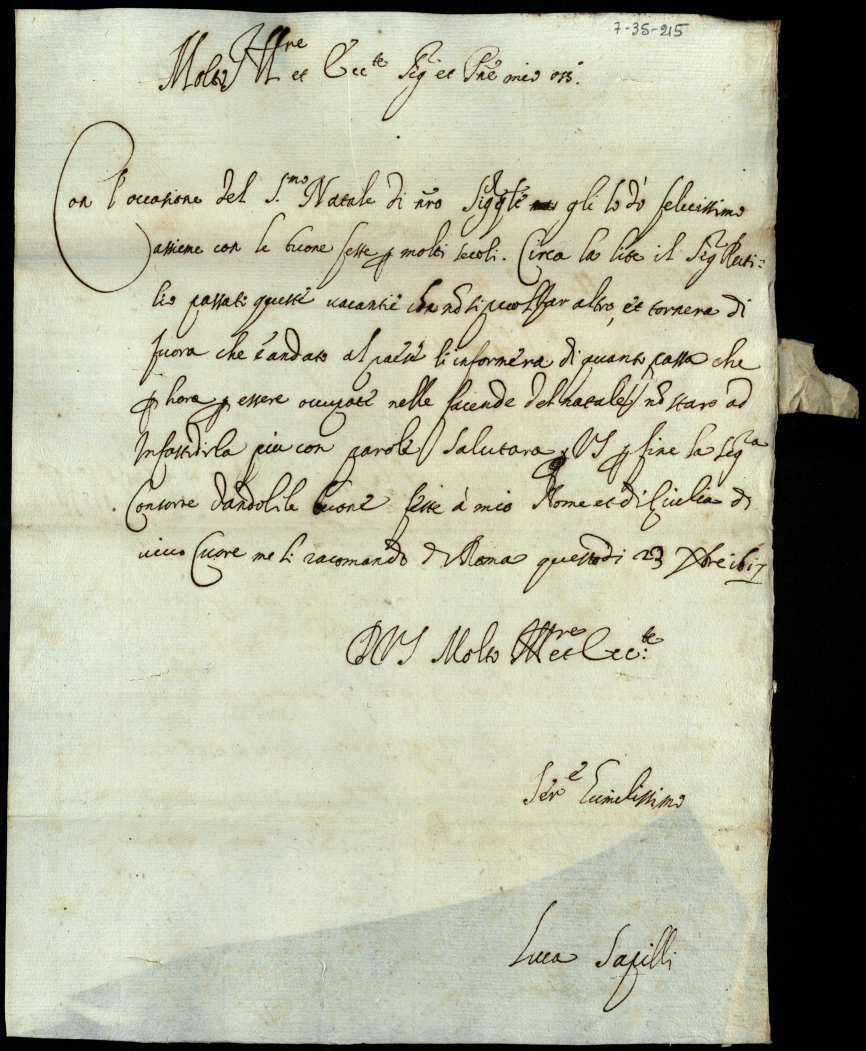 7-35-215
Molto Ill.re et Ecc.te Sig.r et P̃ne mio oss.
Con l'occasione del S.mo Natale di nr̃o Sig.r gli lo dò felicissimo
assieme con le buone feste ꝑ molti secoli. Circa la lite il Sig.r Ruti=
lio passati queste vacantie che nõ si puol far altro, et tornera di
fuora che è andato al paese li informera di quanto passa che
ꝑ hora ꝑ essere occupati nelle facende del natale nõ staro ad
Infastidirla piu con parole salutara VS ꝑ fine la Sig.ra
Consorte dandoli le buone feste à mio Nome et di Giulia di
vivo Cuore me li racomando di Roma questo di 23 Xbre 1617
D VS Molto Ill.re et Ecc.te
Ser.e Humilissimo
Luca Sapilli